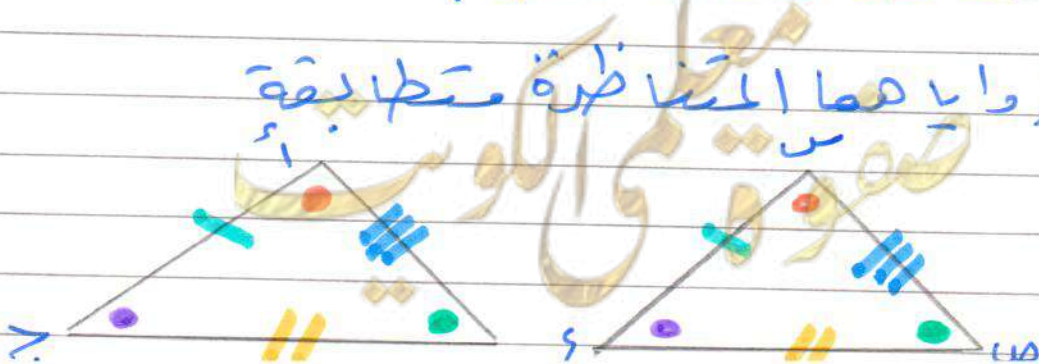 زواياهما المتناظرة متطابقة
س أ
ص ء ج
صفوة معلمي الكويت